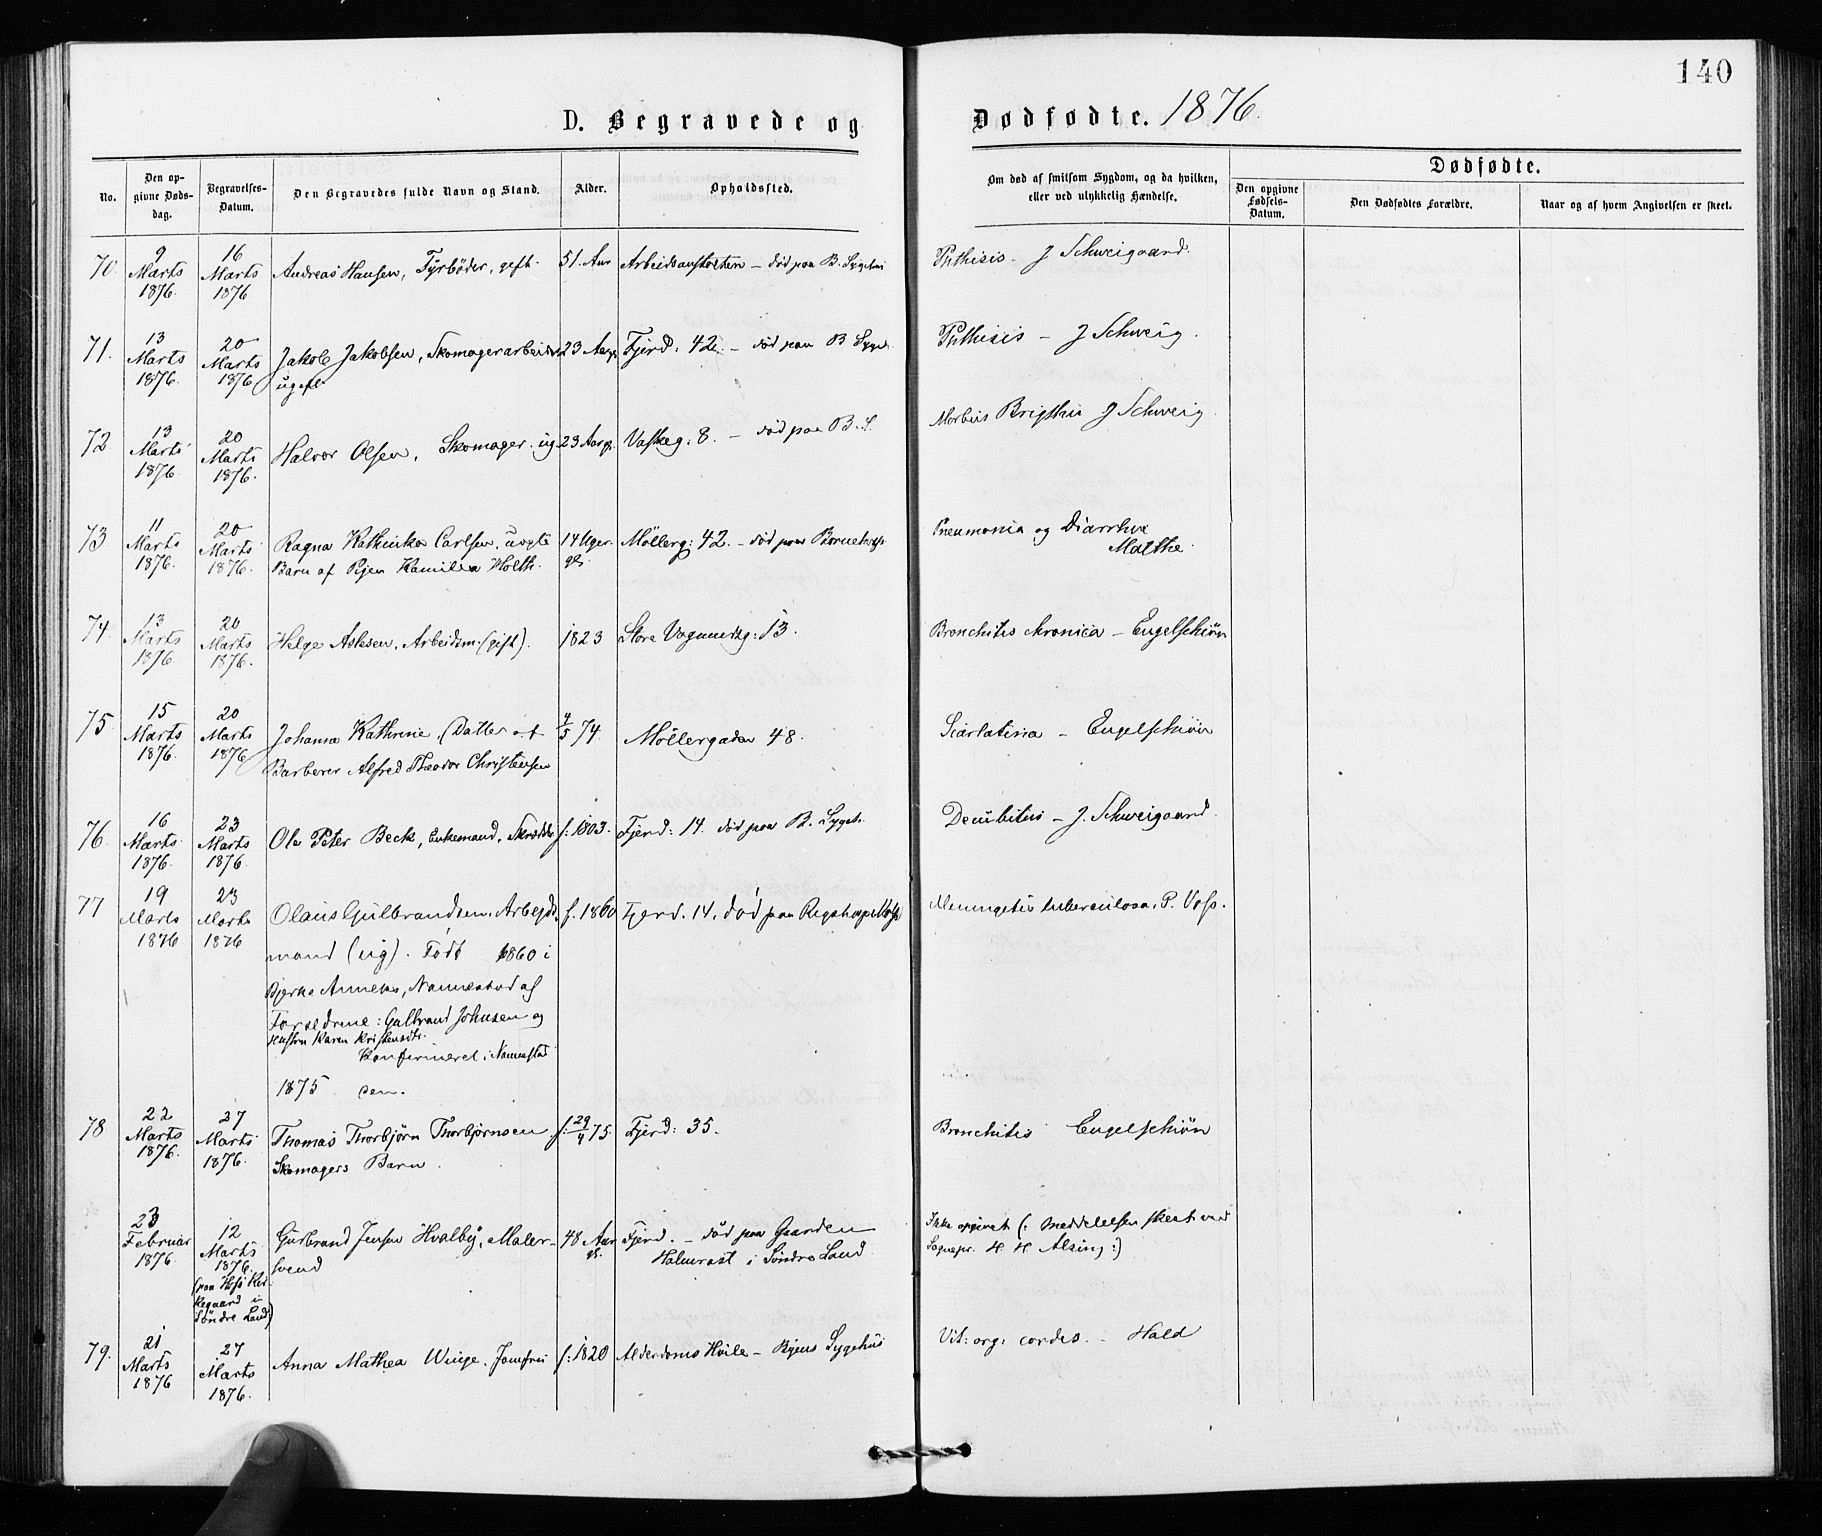 140
D. Begravede og Dødfødte. 1876.
No.
Den op-
givne Døds-
dag.
Begravelses-
Datum.
Den Begravedes fulde Navn og Stand.
Alder.
Opholdssted.
Om død af smitsom Sygdom, og da hvilken,
eller ved ulykkelig Hændelse.
Dødfødte.
Den opgivne
Fødsels-
Datum.
Den Dødfødtes Forældre.
Naar og af hvem Angivelsen er skeet.
70. 9 Marts 1876. 16 Marts 1876 Andreas Hansen, Fyrbøder, gift. 51. Aar Arbeidsanstalten - død paa B. Sygehus Pthisis - J Schweigaard.
71. 13 Marts 1876. 20 Marts 1876 Jakob Jakobsen, Skomagerarbeider 23 Aar Fjerd: 42. - død paa B Sygeh. Pthisis - J Schweig.
ugift
72 13 Marts 1876. 20 Marts 1876. Halvor Olsen, Skomager. ug. 23 Aar gl. Vaskeg: 8. - død paa B. S. Morbus Brigthii J Schweig
73 11 Marts 1876. 20 Marts 1876. Ragna Kathinka Carlsen, uægte 14 Uger Møllerg: 42. - død paa Børnehosp. Pneumonia og Diarrhoe
Barn af Pigen Kamilla Holth. gl. Malthe.
74. 13 Marts 1876 20 Marts 1876. Helge Aslesen, Arbeidsm. (gift). 1823 Store Vognmdsg: 13. Bronchitis chronica - Engelschiøn
75 15 Marts 1876. 20 Marts 1876 Johanna Kathrine, (Datter af 4/5 74. Møllergaden 48. Scarlatina - Engelschiøn
Barberer Alfred Theodor Christensen
76. 16 Marts 1876. 23 Marts 1876. Ole Peter Beck, Enkemand, Skrædder f: 1803. Fjerd: 14. død paa B. Sygeh. Decubitus - J. Schweigaard.
77 19 Marts 1876 23 Marts 1876 Olaus Gulbrandsen, Arbejds f. 1860 Fjerd. 14, død paa Rigshosp. Meningetis tuberculosa. P. Voss.
mand (ug). Født 1860 i
Bjerke Anneks, Nannestad af
Forældrene: Gulbrand Johnsen og
Hustru Karen Kristensdtr.
Konfirmeret i Nannestad
1875
78 22 Marts 1876. 27 Marts 1876. Thomas Thorbjørn Thorbjørnsen f. 29/4 75. Fjerd: 35. Bronchitis Engelschiøn
Skomagers Barn.
23 Februar 1876 12 Marts 1876. Gulbrand Jensen Hvalby, Maler- 48 Aar Fjerd. - død paa Gaarden Ikke opgivet (: Meddelelsen skeet ved
svend gl. Halmrast i Søndre Land Sognepr. H H Alsing:)
(paa Kir-
kegaard i
Søndre Land)
79. 21 Marts 1876 27 Marts 1876. Anna Mathea Winge. Jomfru f: 1820 Alderdoms Hvile - Byens Sygehus Vit: org: cordis. - Hald